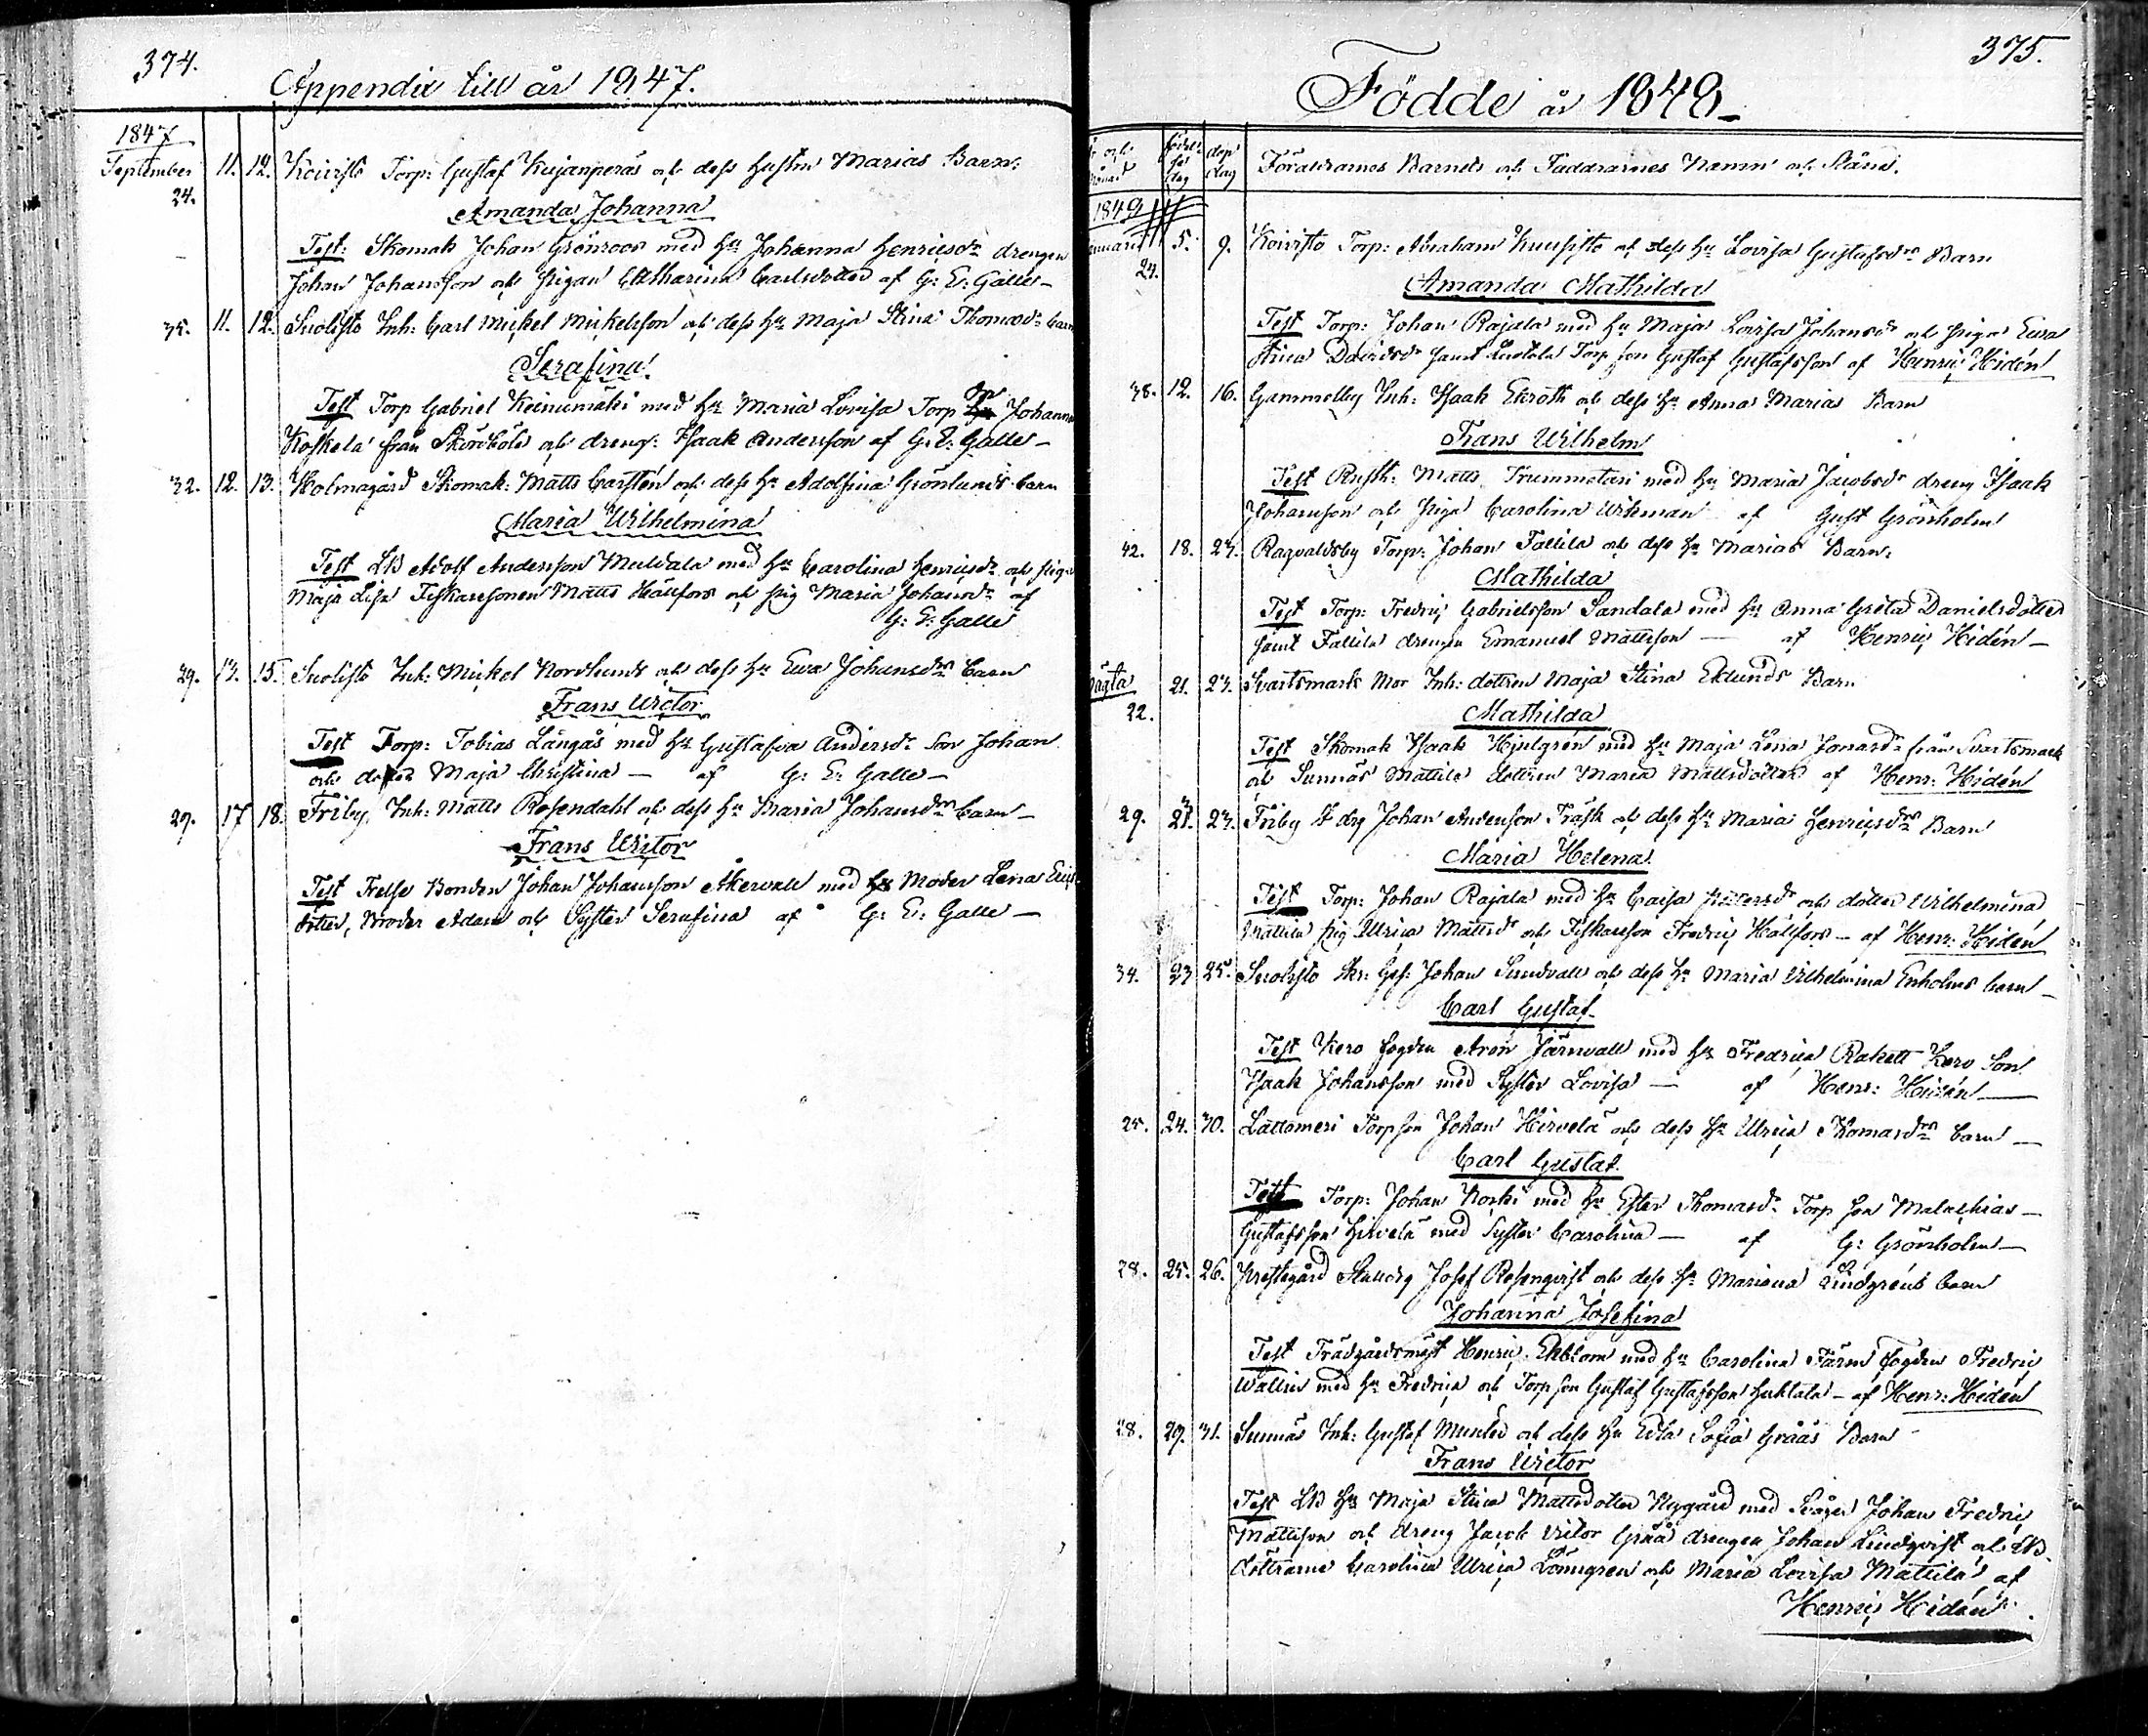 374.
Appendix till år 1847.
1847
September 11. 12. Koivisto Torp: Gustaf Kujanperäs och dess hustru Marias Barn.
24.
Amanda Johanna
Test: Skomak Johan Grönroos med hu Johanna Henricsdr drengen
Johan Johansson och pigan Catharina Carlsdotter af G: E: Galle -
35. 11. 12. Suolisto Inh: Carl Mickel Mickelsson och dess hu Maja Stina Thomasdr barn
Serafina
Test Torp Gabriel Keinumäki med hu Maria Lovisa Torp Johan
Koskela från och dreng: Isaak Andersson af G: E: Galle -
32. 12. 13. Holmagård Skomak: Matts Carstén och dess hu Adolfina Grönlunds barn
Maria Wilhelmina
Test LB Adolf Andersson Muldala med hu Carolina Henricsdr och piga
Maja Lisa Fiskaresonen Matts Hällfors och pig Maria Johansdr af
G: E: Galle
29. 13. 15. Suolisto Inh: Mickel Nordlunds och dess hu Ewa Johansdrs barn
Frans Victor
Test Torp: Tobias Långås med hu Gustafva Andersdr Son Johan
och dotter Maja Christina - af G: E: Galle -
29. 17 18. Friby Inh: Matts Rosendahl och dess hu Maria Johansdrs barn -
Frans Victor
Test Frelse Bonden Johan Johansson Åkervall med Moder Lena Erics
dotter, Broder Adam och Syster Serafina af G: E: Galle -
375.
Födde år 1848 -
födelse dag dop dag Föräldrarnes Barnets och Faddrarnes Namn och Stånd.
1848
Januari 5. 9. Koivisto Torp: Abraham Kuusisto och dess hu Lovisa Gustafsdrs Barn
24.
Amanda Mathilda
Test Torp: Johan Rajala med hu Maja Lovisa Johansdr och piga Ewa
Stina Davidsdr samt Torp son Gustaf Gustafsson af Henric Hidén
38. 12. 16. Gammelby Inh: Isaak Ekroth och dess hu Anna Marias Barn
Frans Wilhelm
Test Rusth: Matts Trummetari med hu Maria Jacobsdr dreng Isaak
Johansson och piga Carolina Wikman af Gust Grönholm
42. 18. 23. Ragvaldsby Torp: Johan Tallila och dess hu Marias Barn.
Mathilda
Test Torp: Fredric Gabrielsson Sandala med hu Anna Greta Danielsdotter
samt Tallila drengen Emanuel Mattsson - af Henric Hidén -
oägta 21. 23. Svartsmark Mor Inh: dottren Maja Stina Eklunds Barn
22.
Mathilda
Test Skomak Isaak Hjulgrén med hu Maja Lena Jonasdr från Svartsmark
och Sunnäs Mattila dottren Maria Mattsdotter af Henr: Hidén
29. 21. 23. Friby A drg Johan Andersson Träsk och dess hu Maria Henricsdrs Barn
Maria Helena
Test Torp: Johan Rajala med hu Caisa och dotter Wilhelmina
Mattila pig Ulrica Mattsdr och Fiskareson Fredric Hällfors - af Henr: Hidén
34. 23 25. Suolisto Skr: Ges: Johan Sundvall och dess hu Maria Vilhelmina Enholms barn -
Carl Gustaf
Test Kero fogden Aron Järnvall med hu Fredrica Rakett Kero Son
Isaak Johansson med Syster Lovisa - af Henr: Hidén -
25. 24. 30. Lattomeri Torpson Johan Hirvelä och dess hu Ulrica Thomasdrs barn -
Carl Gustaf
Test Torp: Johan Koski med hu Ester Thomasdr Torp son Malachias -
Gustafsson Hirvelä med Syster Carolina - af G: Grönholm -
28. 25. 26. Prestegård Stalldrg Josef Rosenqvist och dess hu Mariana Lindgréns barn
Johanna Josefina
Test Trädgårdsmäst Henric Ekblom med hu Carolina Färm fogden Fredric
Wallin med hu Fredrica och Torp son Gustaf Gustafsson Huhtala - af Henr: Hidén
28. 29. 31. Sunnäs Inh: Gustaf Munled och dess hu Edla Sofia Gråås Barn
Frans Victor
Test LB hu Maja Stina Mattsdotter Nygård med Svåger Johan Fredric
Mattsson och dreng Jacob Victor Gråå drengen Johan Lindqvist och LB
döttrarne Carolina Ulrica Lönngren och Maria Lovisa Mattila af
Henric Hidén.